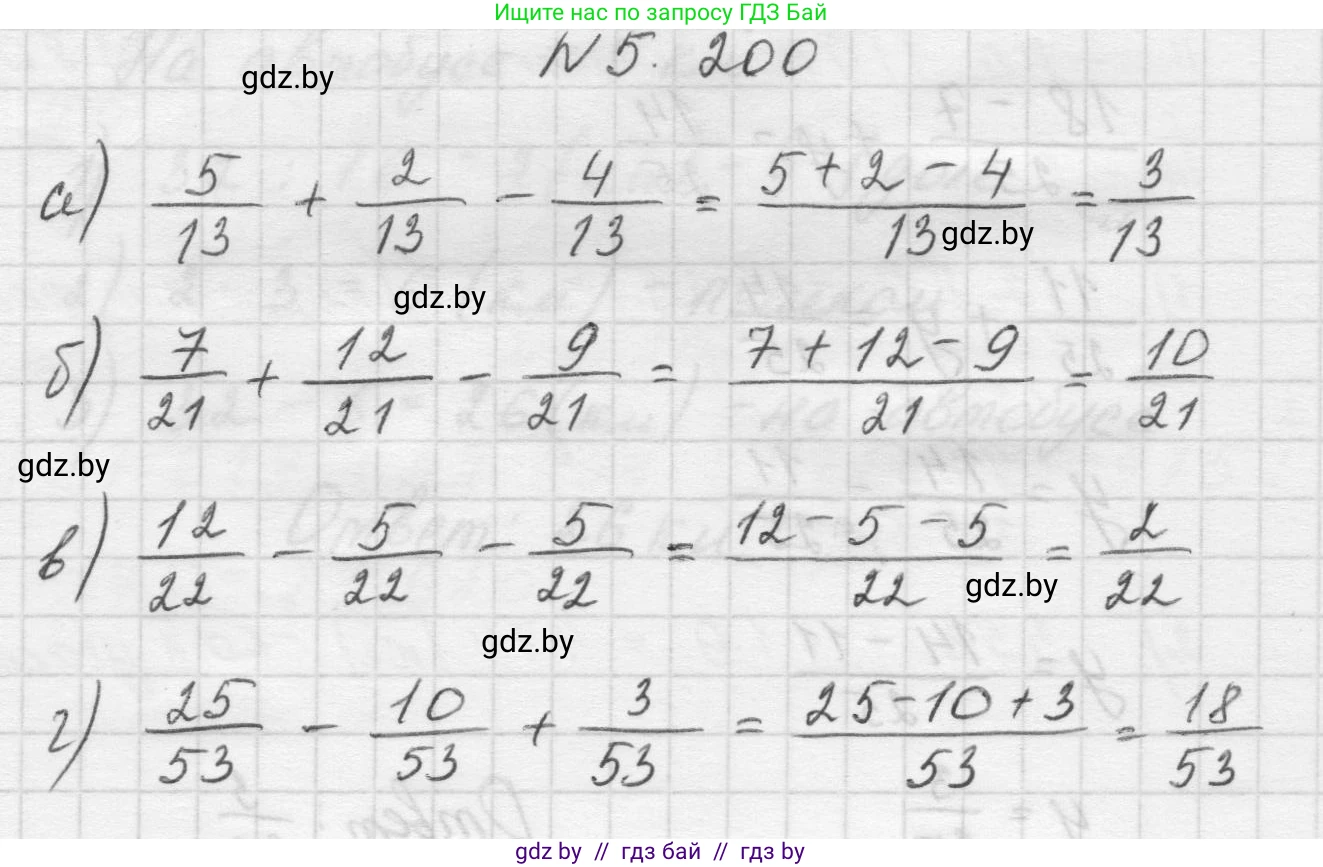 Ищите нас по запросу ГДЗ Бай
N 5. 200
gdz.by
а) 5/13 + 2/13 - 4/13 = (5 + 2 - 4)/13 = 3/13
gdz.by
gdz.by
б) 7/21 + 12/21 - 9/21 = (7 + 12 - 9)/21 = 10/21
gdz.by
в) 12/22 - 5/22 - 5/22 = (12 - 5 - 5)/22 = 2/22
gdz.by
gdz.by
г) 25/53 - 10/53 + 3/53 = (25 - 10 + 3)/53 = 18/53
gdz by // гдз бай // gdz by